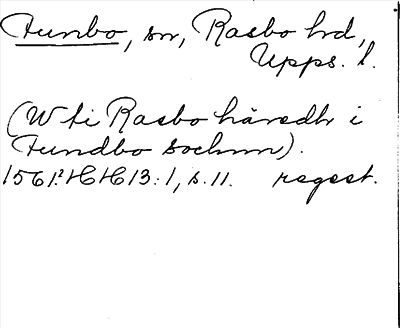 Funbo, sn, Rasbo hd,
Upps. l.
(W ti Rasbo häredh i
Fundbo sochnn).
1561 2/2 HH 13:1, s. 11. regest.